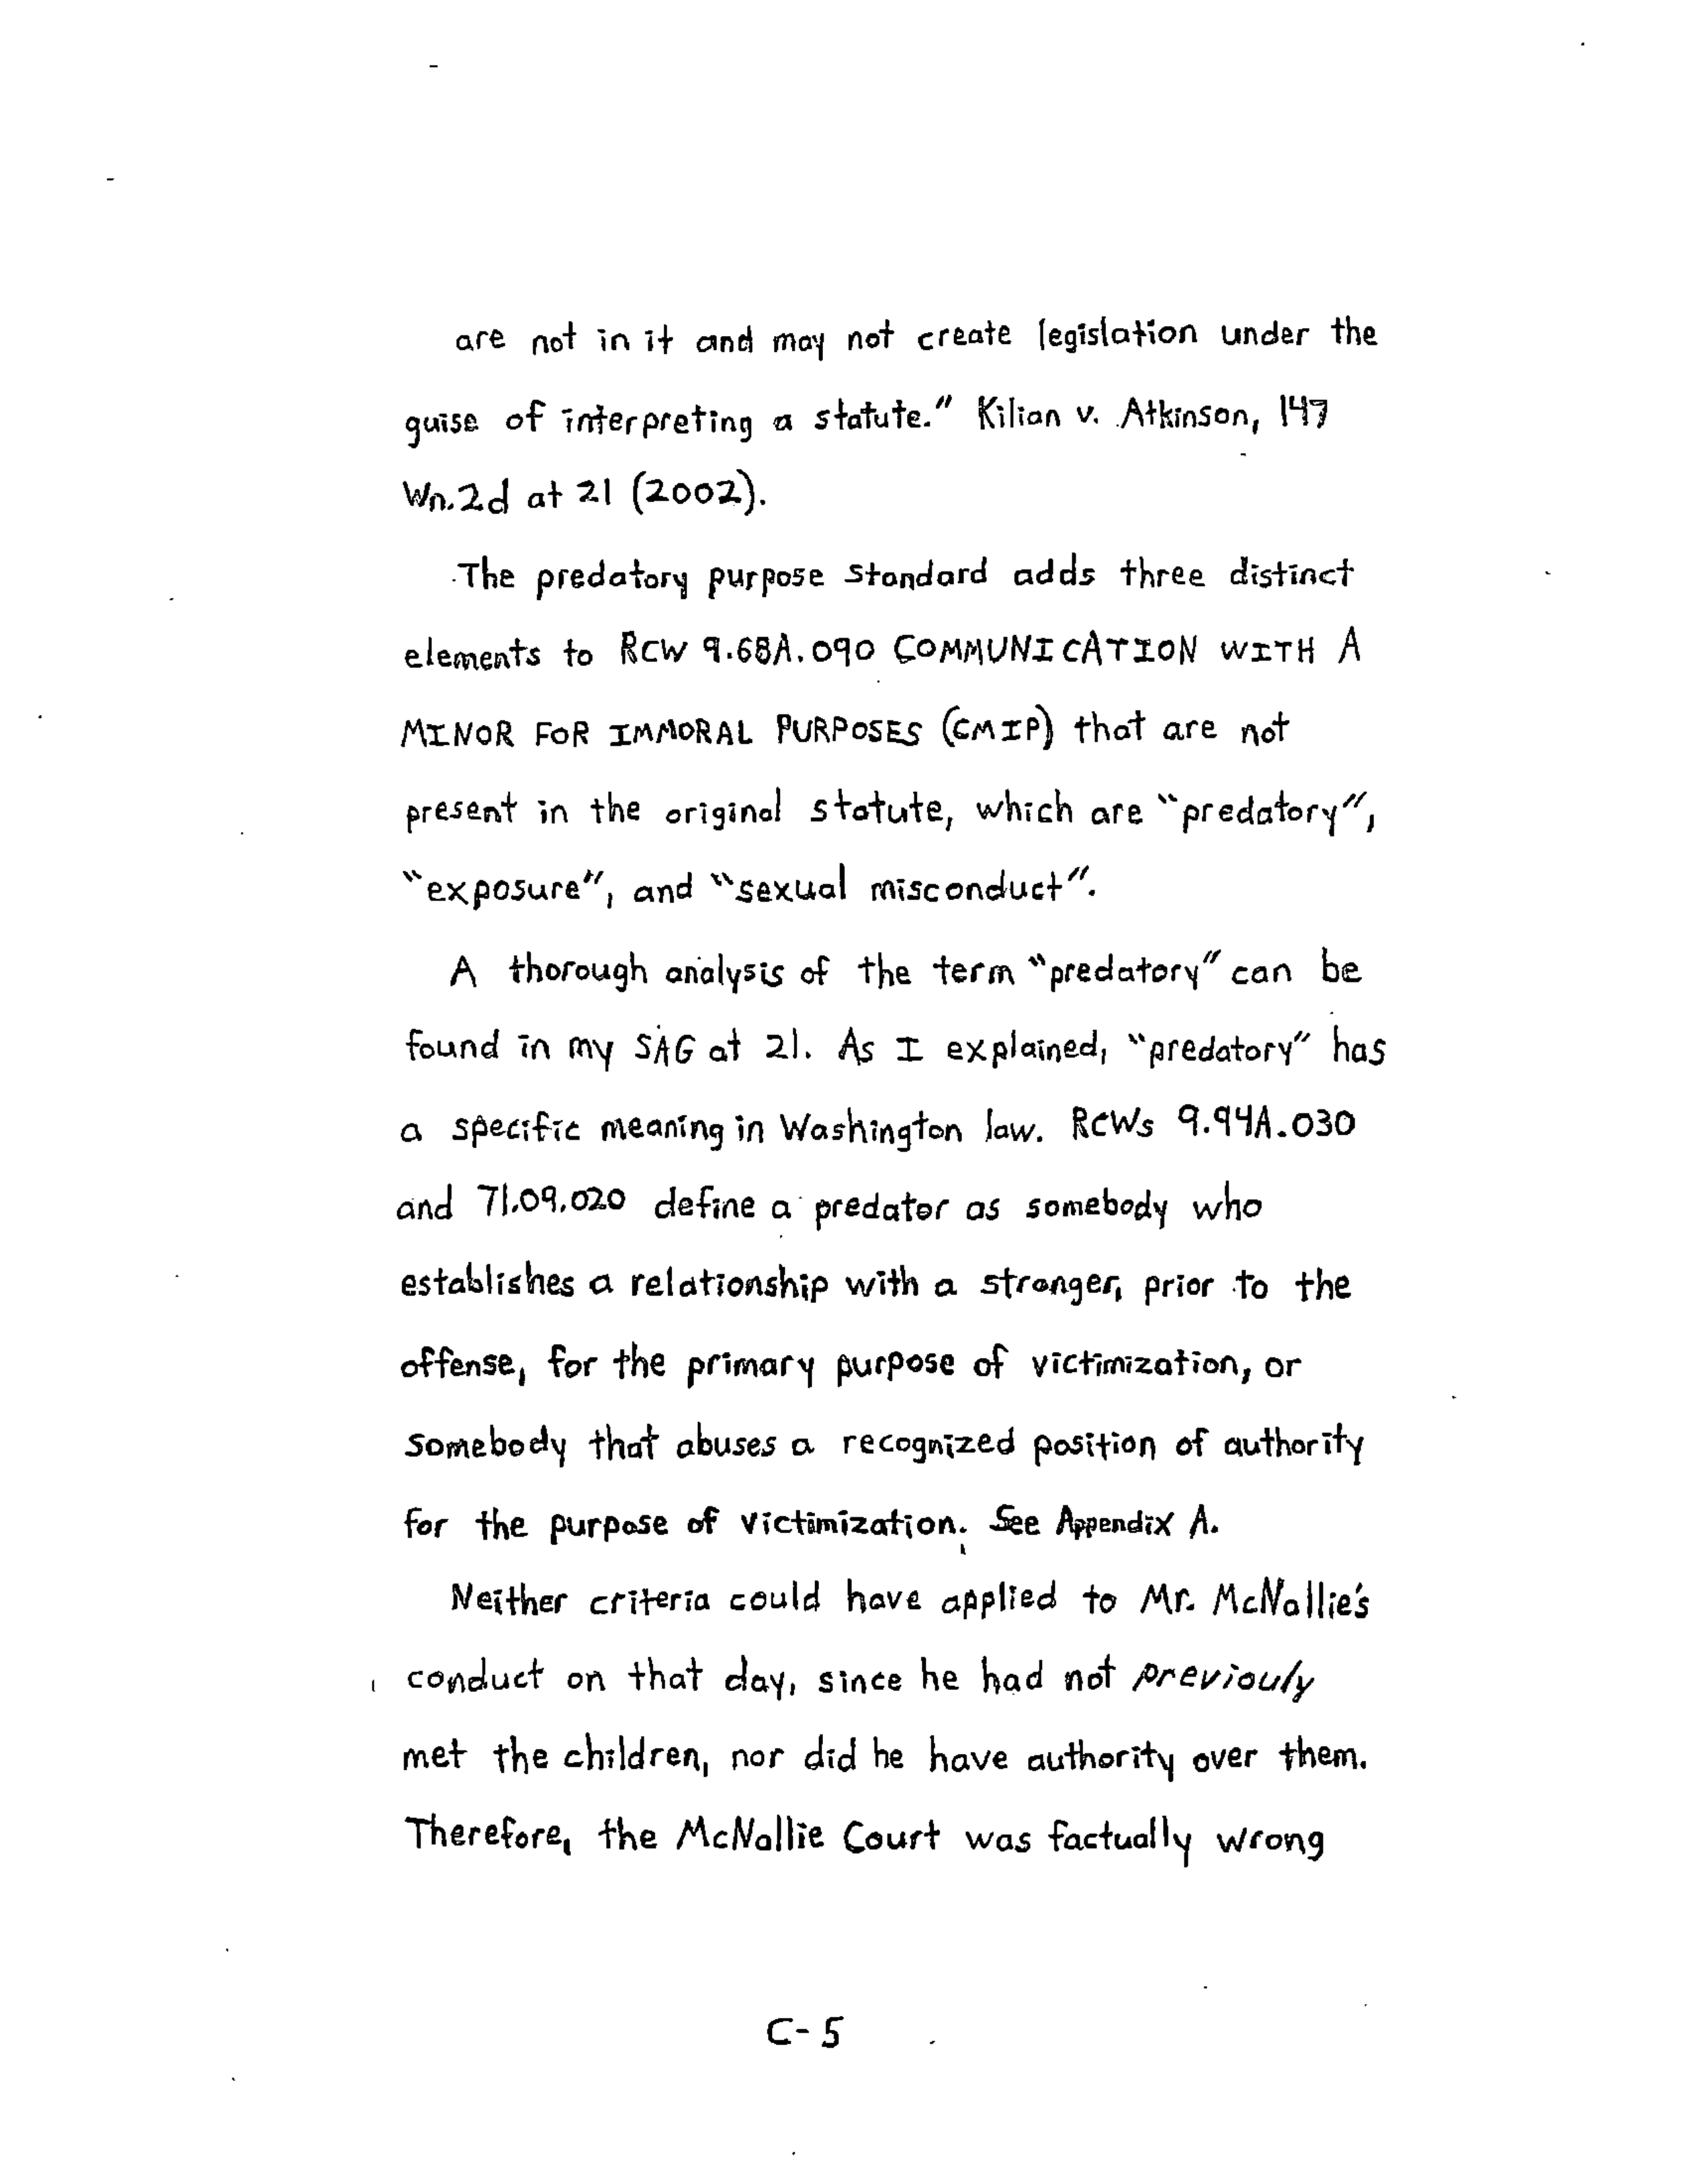 are not in it and may not create legislation under the
guise of interpreting a statute." Kilian v. Atkinson, 147
Wn.2d at 21 (2002).
The predatory purpose standard adds three distinct
elements to RCW 9.68A.090 COMMUNICATION WITH A
MINOR FOR IMMORAL PURPOSES (CMIP) that are not
present in the original statute, which are "predatory",
"exposure", and "sexual misconduct".
A thorough analysis of the term "predatory" can be
found in my SAG at 21. As I explained, "predatory" has
a specific meaning in Washington law. RCWs 9.94A.030
and 71.09.020 define a predator as somebody who
establishes a relationship with a stranger, prior to the
offense, for the primary purpose of victimization, or
somebody that abuses a recognized position of authority
for the purpose of victimization. See Appendix A.
Neither criteria could have applied to Mr. McNallie's
conduct on that day, since he had not previouly
met the children, nor did he have authority over them.
Therefore, the McNallie Court was factually wrong
C-5